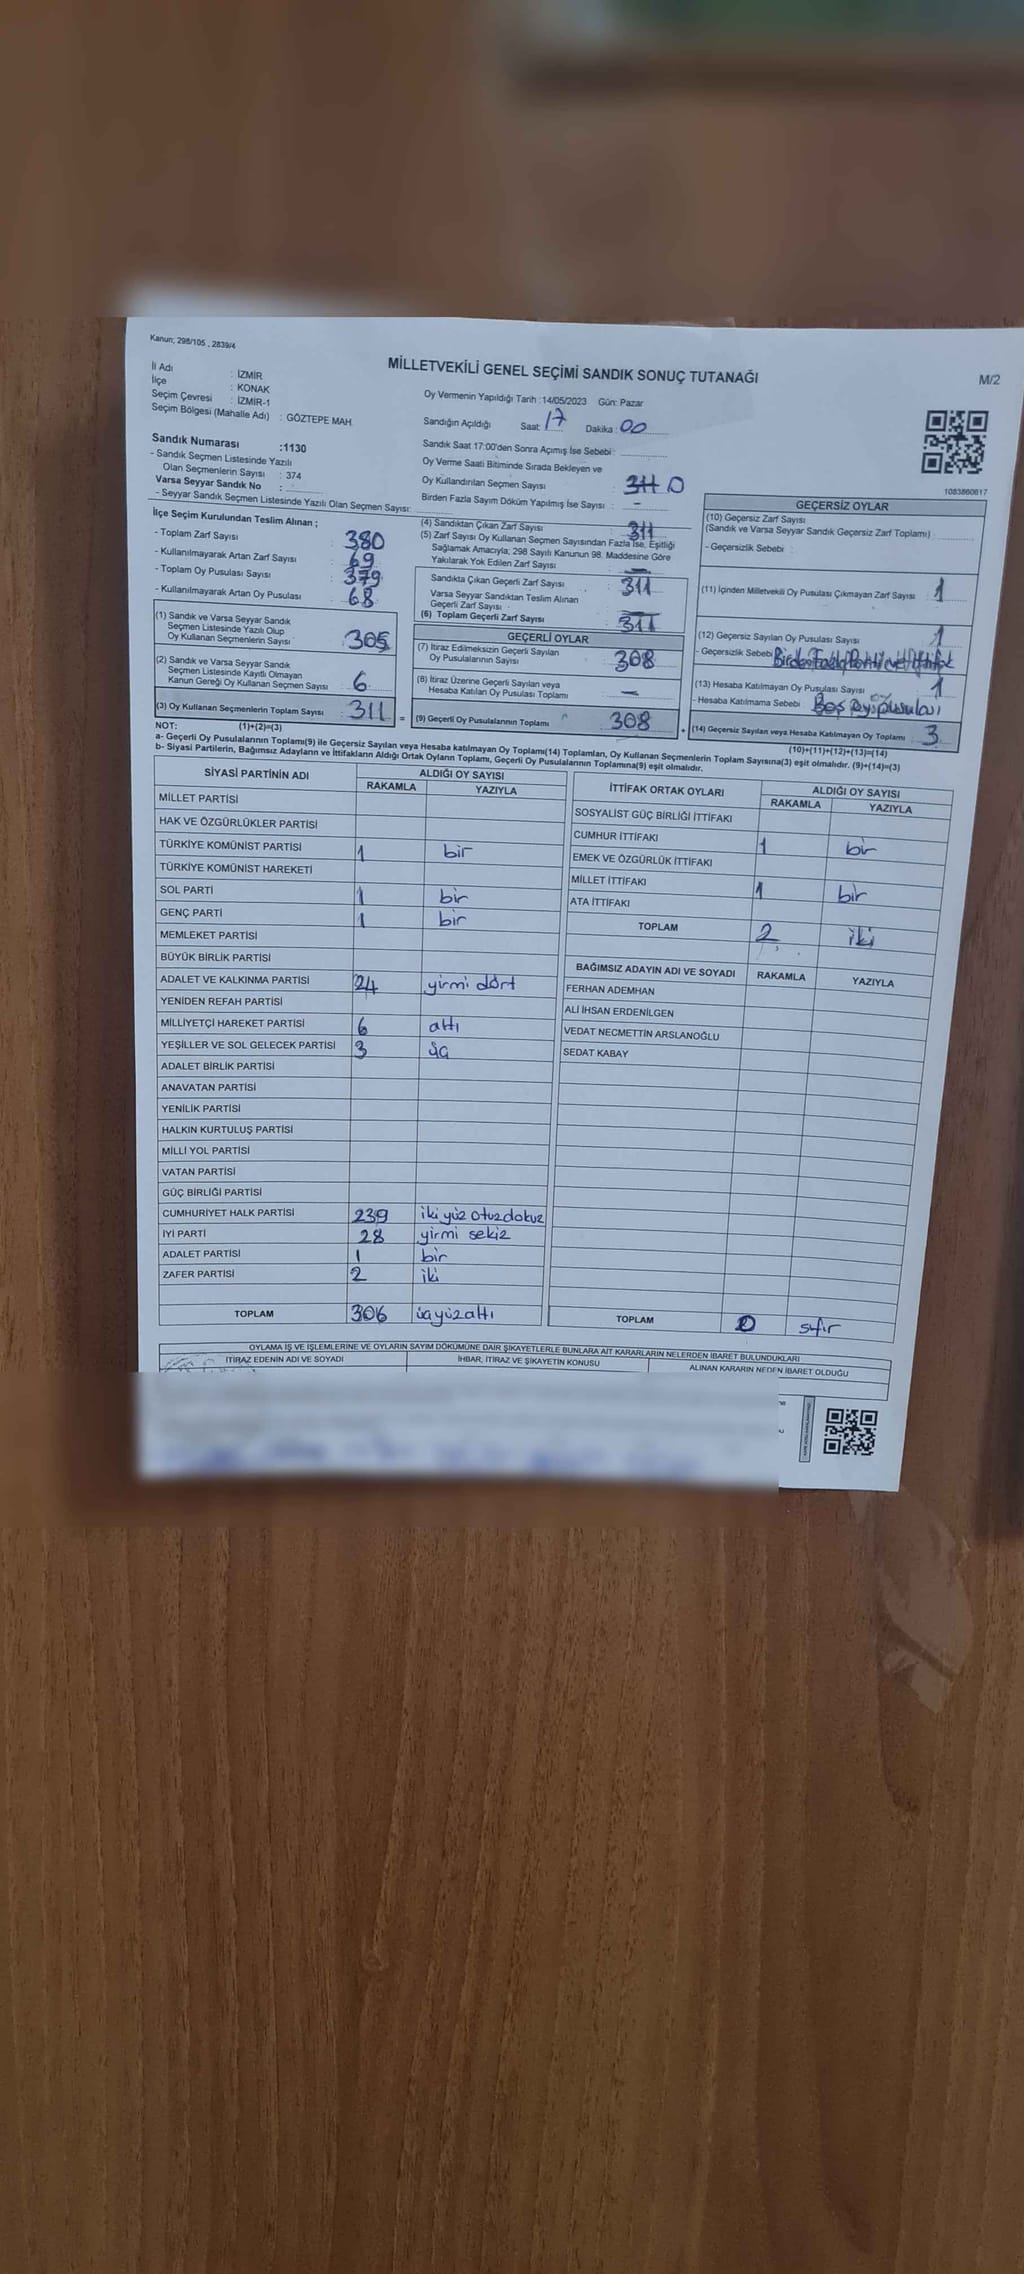 Kanun; 298/105 , 2839/4
MİLLETVEKİLİ GENEL SEÇİMİ SANDIK SONUÇ TUTANAĞI
M/2
İl Adı : İZMİR
İlçe : KONAK
Seçim Çevresi : İZMİR-1
Seçim Bölgesi (Mahalle Adı) : GÖZTEPE MAH.
Oy Vermenin Yapıldığı Tarih :14/05/2023 Gün: Pazar
Sandığın Açıldığı Saat: 17 Dakika : 00
Sandık Saat 17:00'den Sonra Açımış İse Sebebi :
Oy Verme Saati Bitiminde Sırada Bekleyen ve
Oy Kullandırılan Seçmen Sayısı : 311 0
Birden Fazla Sayım Döküm Yapılmış İse Sayısı : -
1083860617
Sandık Numarası :1130
- Sandık Seçmen Listesinde Yazılı
Olan Seçmenlerin Sayısı : 374
Varsa Seyyar Sandık No :
- Seyyar Sandık Seçmen Listesinde Yazılı Olan Seçmen Sayısı:
İlçe Seçim Kurulundan Teslim Alınan ;
- Toplam Zarf Sayısı : 380
- Kullanılmayarak Artan Zarf Sayısı : 69
- Toplam Oy Pusulası Sayısı : 379
- Kullanılmayarak Artan Oy Pusulası : 68
(1) Sandık ve Varsa Seyyar Sandık
Seçmen Listesinde Yazılı Olup
Oy Kullanan Seçmenlerin Sayısı : 305
(2) Sandık ve Varsa Seyyar Sandık
Seçmen Listesinde Kayıtlı Olmayan
Kanun Gereği Oy Kullanan Seçmen Sayısı : 6
(3) Oy Kullanan Seçmenlerin Toplam Sayısı : 311
(1)+(2)=(3)
(4) Sandıktan Çıkan Zarf Sayısı : 311
(5) Zarf Sayısı Oy Kullanan Seçmen Sayısından Fazla İse, Eşitliği
Sağlamak Amacıyla; 298 Sayılı Kanunun 98. Maddesine Göre
Yakılarak Yok Edilen Zarf Sayısı : —
Sandıkta Çıkan Geçerli Zarf Sayısı : 311
Varsa Seyyar Sandıktan Teslim Alınan
Geçerli Zarf Sayısı : —
(6) Toplam Geçerli Zarf Sayısı : 311
GEÇERLİ OYLAR
(7) İtiraz Edilmeksizin Geçerli Sayılan
Oy Pusulalarının Sayısı : 308
(8) İtiraz Üzerine Geçerli Sayılan veya
Hesaba Katılan Oy Pusulası Toplamı : —
= (9) Geçerli Oy Pusulalarının Toplamı : 308
GEÇERSİZ OYLAR
(10) Geçersiz Zarf Sayısı
(Sandık ve Varsa Seyyar Sandık Geçersiz Zarf Toplamı) :
- Geçersizlik Sebebi :
(11) İçinden Milletvekili Oy Pusulası Çıkmayan Zarf Sayısı : 1
(12) Geçersiz Sayılan Oy Pusulası Sayısı : 1
- Geçersizlik Sebebi Birden Fazla Parti ve İttifak
(13) Hesaba Katılmayan Oy Pusulası Sayısı : 1
- Hesaba Katılmama Sebebi : Boş oy pusulası
+ (14) Geçersiz Sayılan veya Hesaba Katılmayan Oy Toplamı : 3
(10)+(11)+(12)+(13)=(14)
NOT:
a- Geçerli Oy Pusulalarının Toplamı(9) ile Geçersiz Sayılan veya Hesaba katılmayan Oy Toplamı(14) Toplamları, Oy Kullanan Seçmenlerin Toplam Sayısına(3) eşit olmalıdır. (9)+(14)=(3)
b- Siyasi Partilerin, Bağımsız Adayların ve İttifakların Aldığı Ortak Oyların Toplamı, Geçerli Oy Pusulalarının Toplamına(9) eşit olmalıdır.
SİYASİ PARTİNİN ADI ALDIĞI OY SAYISI
RAKAMLA YAZIYLA
MİLLET PARTİSİ
HAK VE ÖZGÜRLÜKLER PARTİSİ
TÜRKİYE KOMÜNİST PARTİSİ 1 bir
TÜRKİYE KOMÜNİST HAREKETİ
SOL PARTİ 1 bir
GENÇ PARTİ 1 bir
MEMLEKET PARTİSİ
BÜYÜK BİRLİK PARTİSİ
ADALET VE KALKINMA PARTİSİ 24 yirmi dört
YENİDEN REFAH PARTİSİ
MİLLİYETÇİ HAREKET PARTİSİ 6 altı
YEŞİLLER VE SOL GELECEK PARTİSİ 3 üç
ADALET BİRLİK PARTİSİ
ANAVATAN PARTİSİ
YENİLİK PARTİSİ
HALKIN KURTULUŞ PARTİSİ
MİLLİ YOL PARTİSİ
VATAN PARTİSİ
GÜÇ BİRLİĞİ PARTİSİ
CUMHURİYET HALK PARTİSİ 239 iki yüz otuz dokuz
İYİ PARTİ 28 yirmi sekiz
ADALET PARTİSİ 1 bir
ZAFER PARTİSİ 2 iki
TOPLAM 306 üçyüzaltı
İTTİFAK ORTAK OYLARI ALDIĞI OY SAYISI
RAKAMLA YAZIYLA
SOSYALİST GÜÇ BİRLİĞİ İTTİFAKI
CUMHUR İTTİFAKI 1 bir
EMEK VE ÖZGÜRLÜK İTTİFAKI
MİLLET İTTİFAKI 1 bir
ATA İTTİFAKI
TOPLAM 2 iki
BAĞIMSIZ ADAYIN ADI VE SOYADI RAKAMLA YAZIYLA
FERHAN ADEMHAN
ALİ İHSAN ERDENİLGEN
VEDAT NECMETTİN ARSLANOĞLU
SEDAT KABAY
TOPLAM 0 sıfır
OYLAMA İŞ VE İŞLEMLERİNE VE OYLARIN SAYIM DÖKÜMÜNE DAİR ŞİKAYETLERLE BUNLARA AİT KARARLARIN NELERDEN İBARET BULUNDUKLARI
İTİRAZ EDENİN ADI VE SOYADI İHBAR, İTİRAZ VE ŞİKAYETİN KONUSU ALINAN KARARIN NEDEN İBARET OLDUĞU